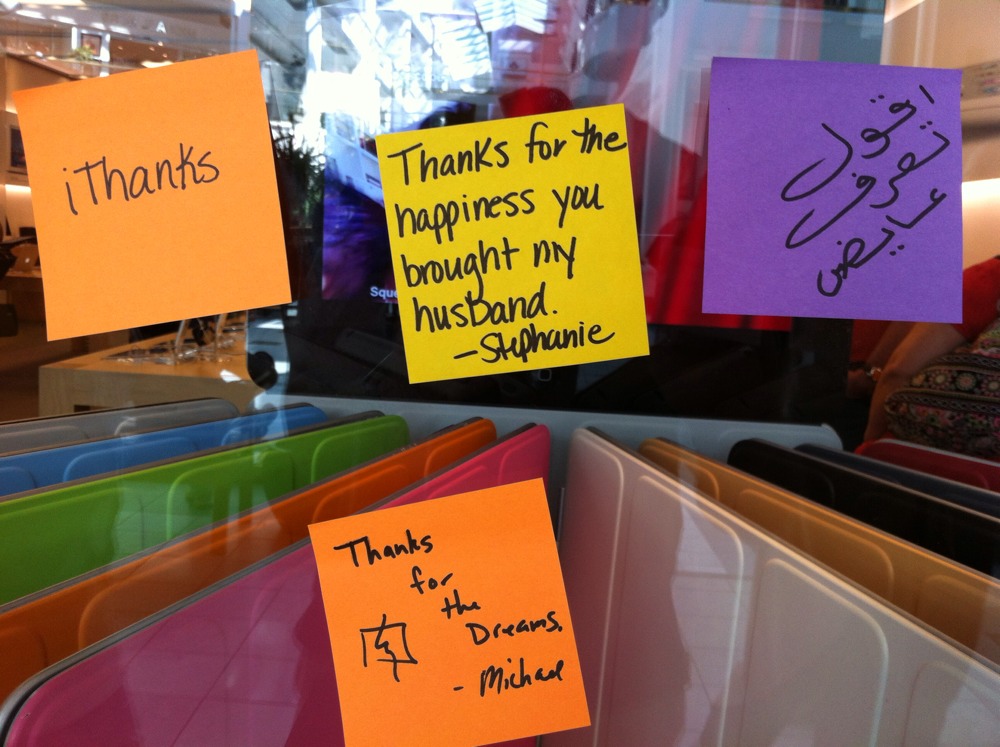 iThanks
Thanks for the
happiness you
brought my
husband.
-Stephanie
اقول
تعرف
عايض
Sque
Thanks
for
the
Dreams.
- Michael